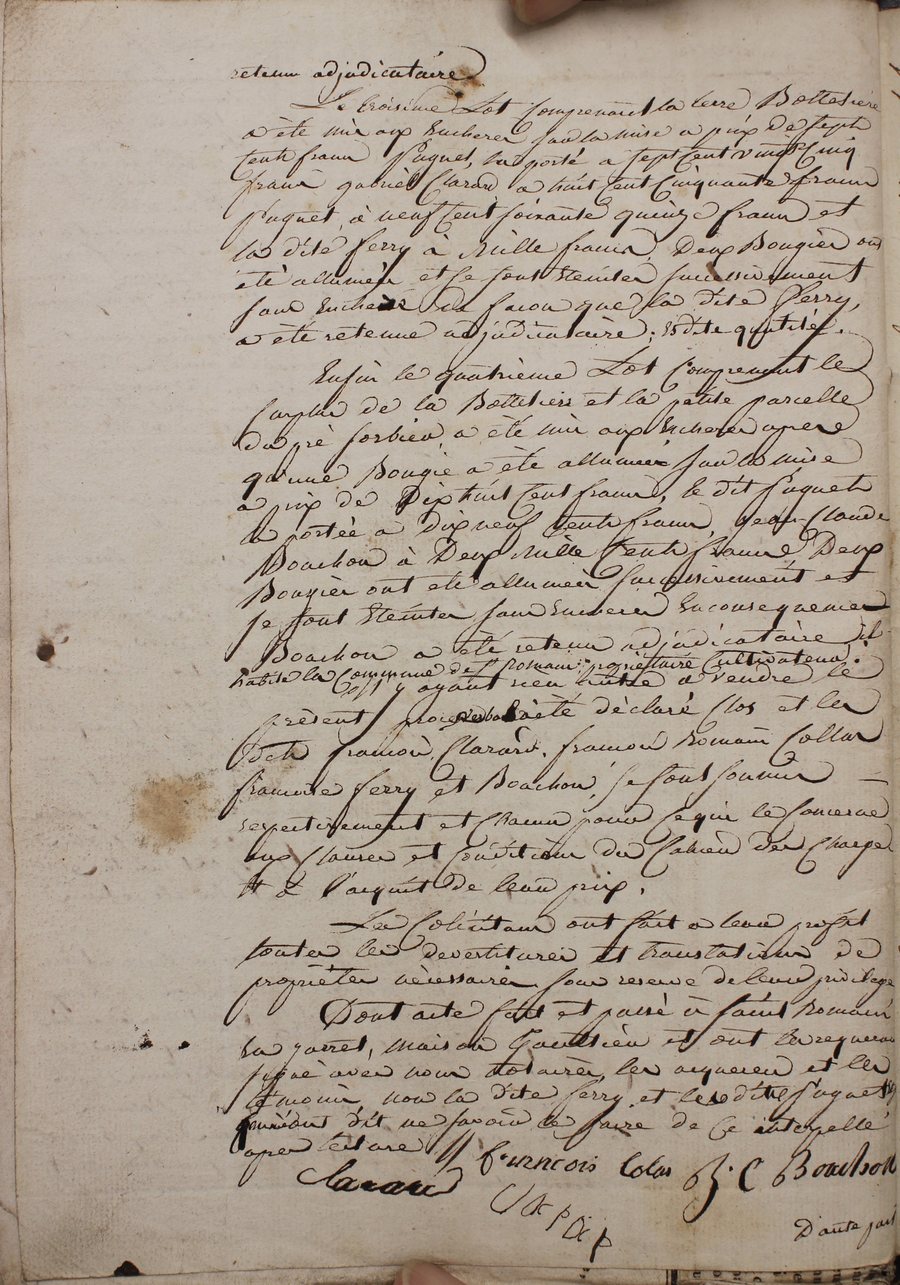 retenue adjudicataire
Le troisieme Lot Comprenant la terre Bottetiere
a été mis aux Encheres sur la mise a prix de Sept
Cent francs Paquet, la porté a Sept Cent vingt Cinq
francs gabriel Clarard a huit Cent Cinquante francs
Paquet à neuf Cent soixante quinze francs et
la dite ferry à Mille francs, Deux Bougies ont
été allumées et se sont Eteintes Successivement
sans Encheres de facon que la dite ferry,
a été retenue adjudicataire; dite quatité.
Enfin le quatrieme Lot Comprenant le
Surplus de la Bottetiere et la petite parcelle
du pré sorbier a été mis aux Encheres apres
qu'une Bougie a été allumée sur la mise
a prix de Dix huit Cent francs, le dit Paquet
la portée a dix neuf Cents francs, Jean-Claude
Bouchon à Deux Mille Cents francs Deux
Bougies ont été allumées Successivement et
se sont Eteintes sans Encheres En consequence
Bouchon a été retenu adjudicataire il
habite la Commune de St Romain propriétaire Cultivateur.
y ayant rien autre a vendre le
présent procès verbal a été déclaré Clos et les
dits francois Clarard. francois Romain Collas
francoise ferry et Bouchon, se sont soumis
respectivement et Chacun pour ce qui le Concerne
aux Clauses et Conditions du Cahier des Charges
& à l'acquit de leur prix.
Les Colicitans ont fait a leur profit
toutes les devestitures et translations de
propriétés nécessaires sous reserve de leur privilege
Dont acte fait et passé à Saint Romain
En jarret, maison Gaultier et ont les requerans
signé avec nous notaires, les acquereurs et les
témoins, non la dite ferry et les dits Paquet
qui ont dit ne savoir le faire de ce interpellé
apres lecture //
francois Colas J. C Bouchon
Clarard
D'autre part